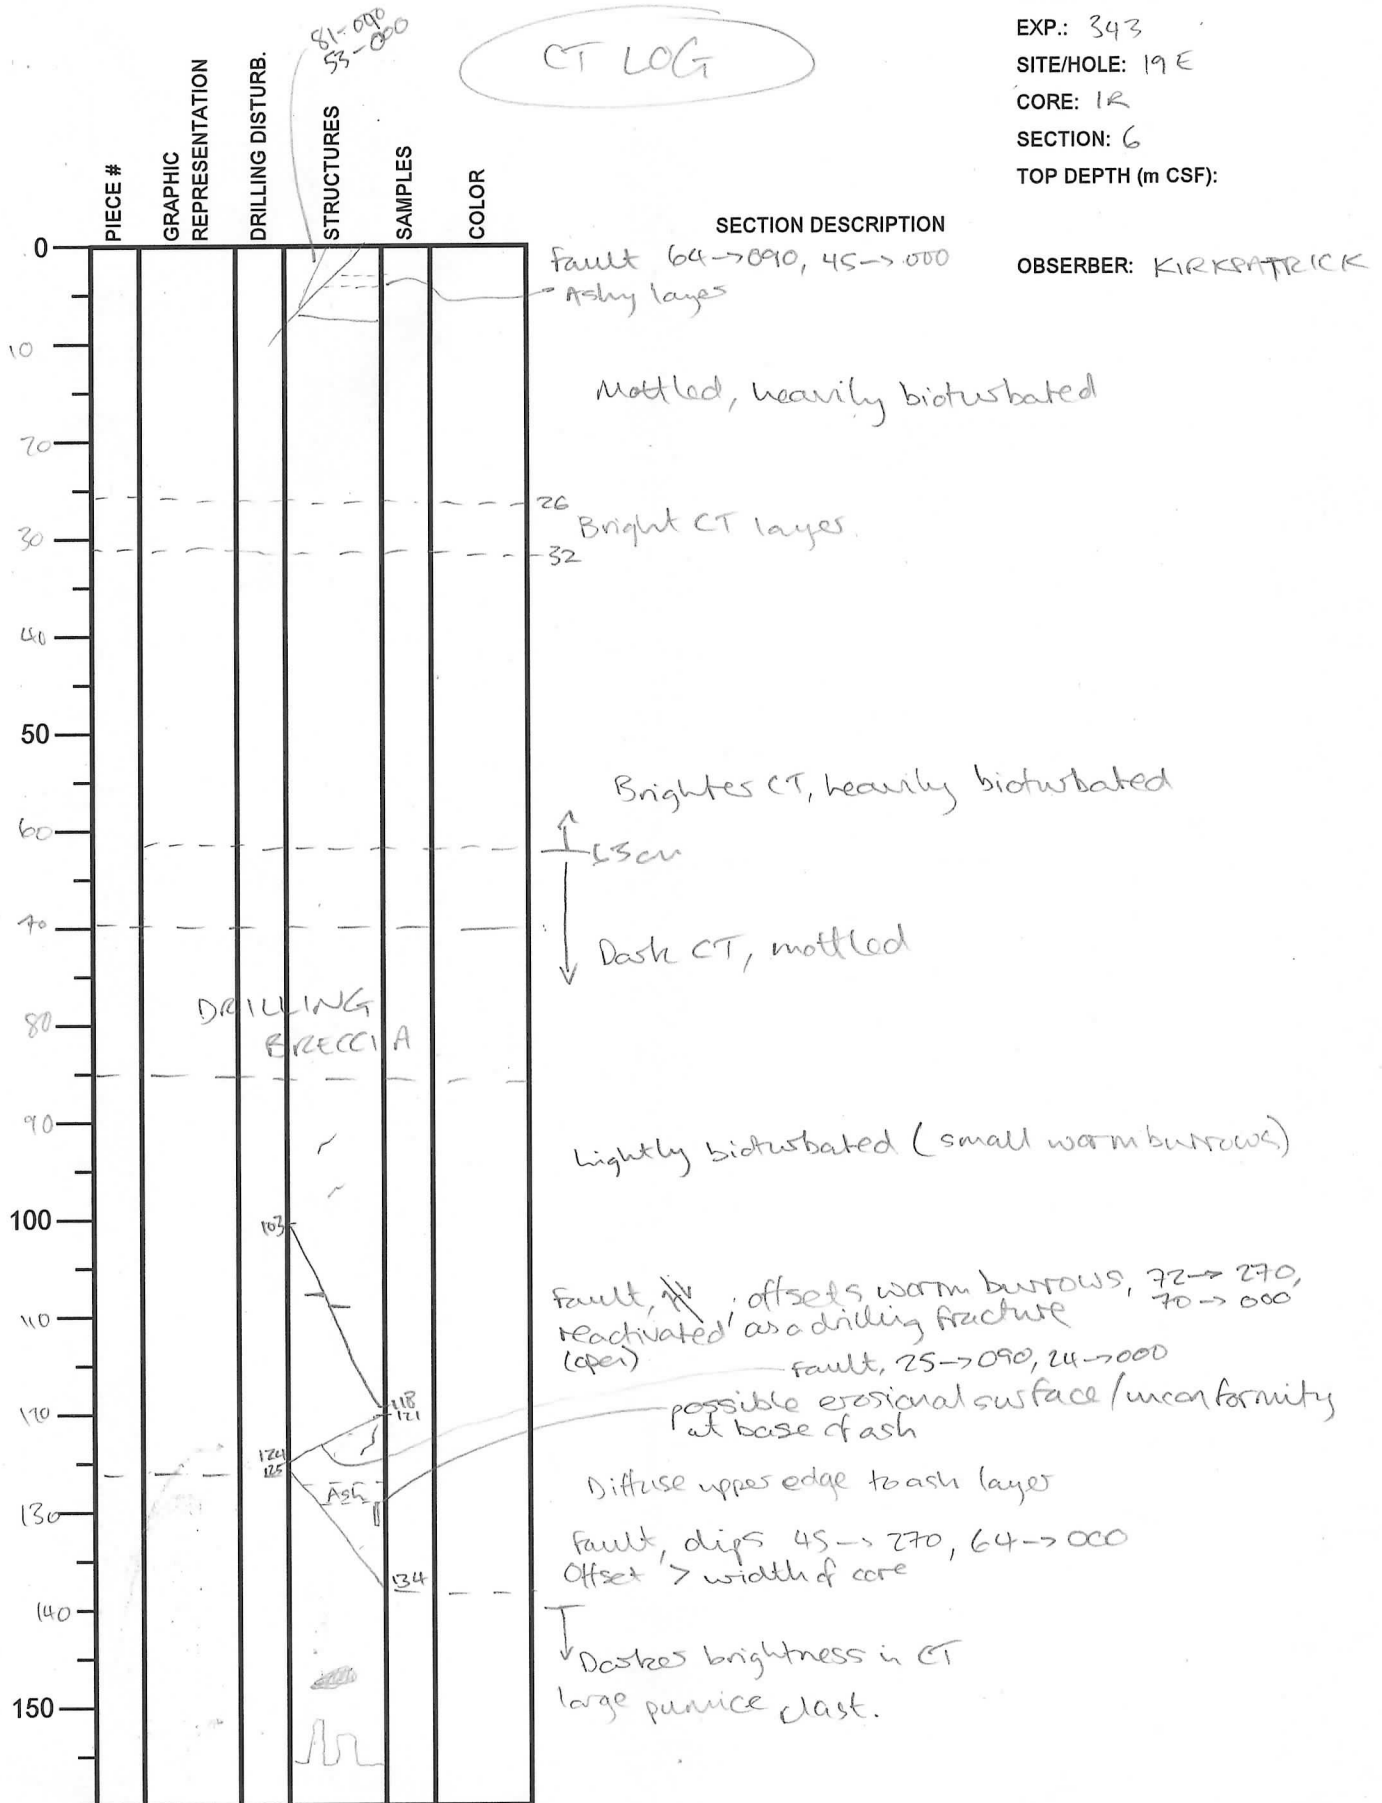 81-090
53-000
CT LOG
EXP.: 343
SITE/HOLE: 19 E
CORE: 1R
SECTION: 6
TOP DEPTH (m CSF):
OBSERBER: KIRKPATRICK
PIECE #
GRAPHIC
REPRESENTATION
DRILLING DISTURB.
STRUCTURES
SAMPLES
COLOR
SECTION DESCRIPTION
0
Fault 64->090, 45->000
Ashy layer
10
Mottled, heavily bioturbated
20
26
Bright CT layer
30
32
40
50
Brighter CT, heavily bioturbated
60
63cm
70
Dark CT, mottled
DRILLING
80
BRECCIA
90
Lightly bioturbated (small worm burrows)
100
103
Fault, offsets worm burrows, 72->270,
70->000
110
reactivated as a drilling fracture
(open)
Fault, 25->090, 24->000
118
120
121
possible erosional surface/unconformity
at base of ash
124
125
Diffuse upper edge to ash layer
Ash
130
Fault, dips 45->270, 64->000
Offset > width of core
134
140
Darker brightness in CT
large pumice clast.
150